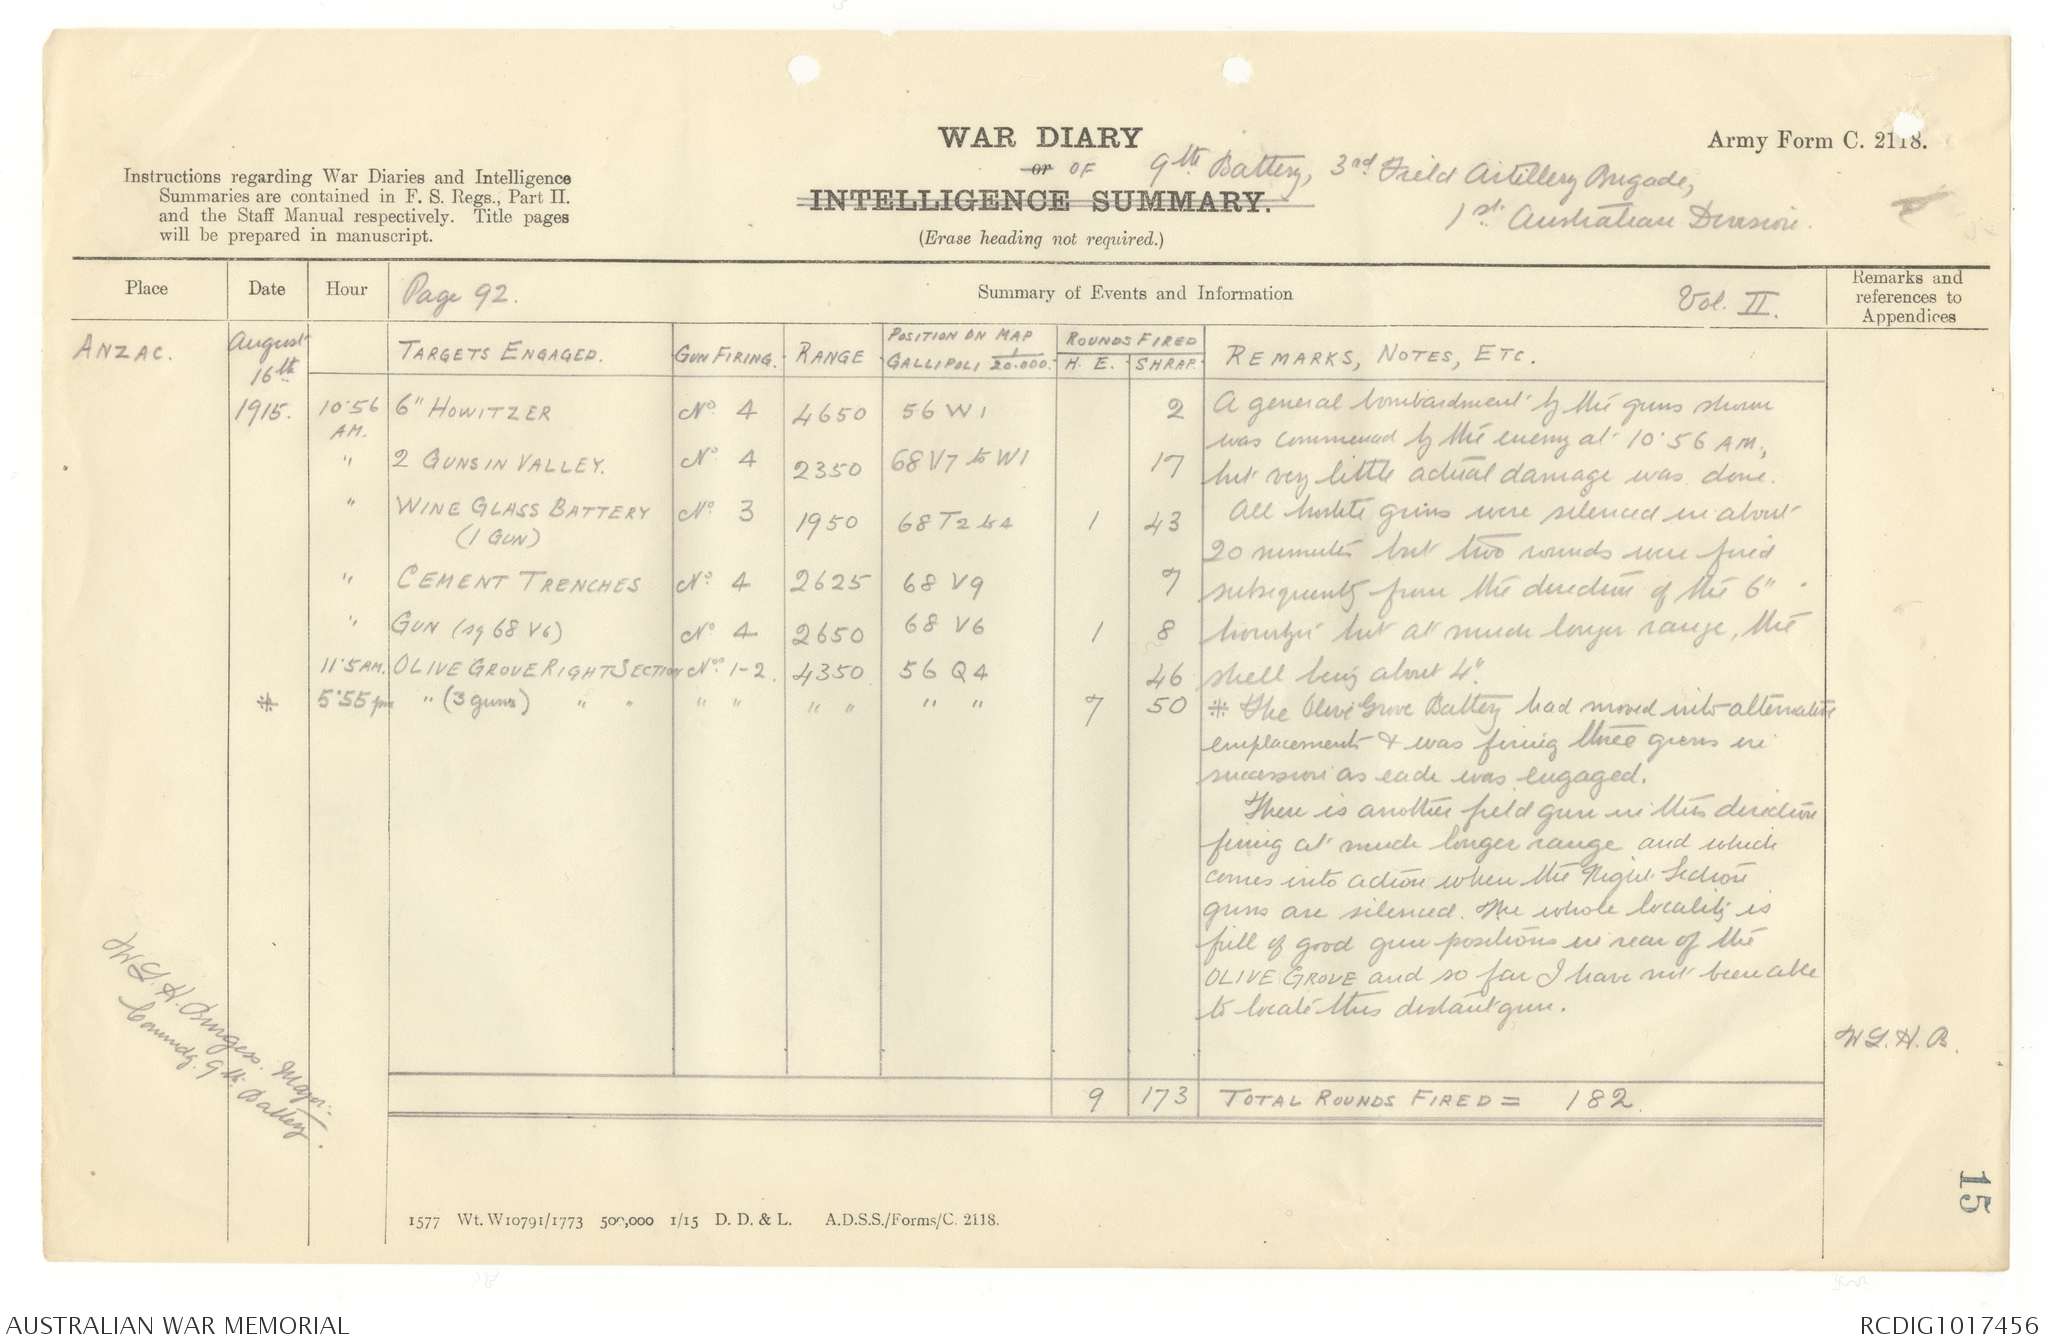 WAR DIARY
or OF
INTELLIGENCE SUMMARY.
(Erase heading not required.)
9th Battery, 3rd Field Artillery Brigade,
1st Australian Division.
Army Form C. 2118.
Instructions regarding War Diaries and Intelligence
Summaries are contained in F. S. Regs., Part II.
and the Staff Manual respectively. Title pages
will be prepared in manuscript.
Place Date Hour Page 92. Summary of Events and Information Vol. II. Remarks and
references to
Appendices
ANZAC. August
16th
1915.
TARGETS ENGAGED. GUN FIRING. RANGE POSITION ON MAP
GALLIPOLI 1/20.000. ROUNDS FIRED
H. E. SHRAP. REMARKS, NOTES, ETC.
10.56
AM. 6" HOWITZER No. 4 4650 56 W 1 2
" 2 GUNS IN VALLEY. No. 4 2350 68 V7 to W1 17
" WINE GLASS BATTERY No. 3 1950 68 T2 to 4 1 43
(1 GUN)
" CEMENT TRENCHES No. 4 2625 68 V9 7
" GUN (sq 68 V6) No. 4 2650 68 V6 1 8
11.5 AM. OLIVE GROVE RIGHT SECTION Nos. 1-2. 4350 56 Q4 46
* 5.55 pm " (3 guns) " " " " " " " " 7 50
A general bombardment by the guns shown
was commenced by the enemy at 10.56 AM.,
but very little actual damage was done.
All hostile guns were silenced in about
20 minutes but two rounds were fired
subsequently from the direction of the 6"
howitzer but at much longer range, the
shell being about 4".
* The Olive Grove Battery had moved into alternative
emplacements & was firing three guns in
succession as each was engaged.
There is another field gun in this direction
firing at much longer range and which
comes into action when the Right Section
guns are silenced. The whole locality is
full of good gun positions in rear of the
OLIVE GROVE and so far I have not been able
to locate this distant gun.
W.L.H.B.
W.L.H. Burgess. Major.
Commdg. 9th Battery.
9 173 TOTAL ROUNDS FIRED = 182.
1577 Wt. W10791/1773 500,000 1/15 D. D. & L. A.D.S.S./Forms/C. 2118.
15
AUSTRALIAN WAR MEMORIAL RCDIG1017456